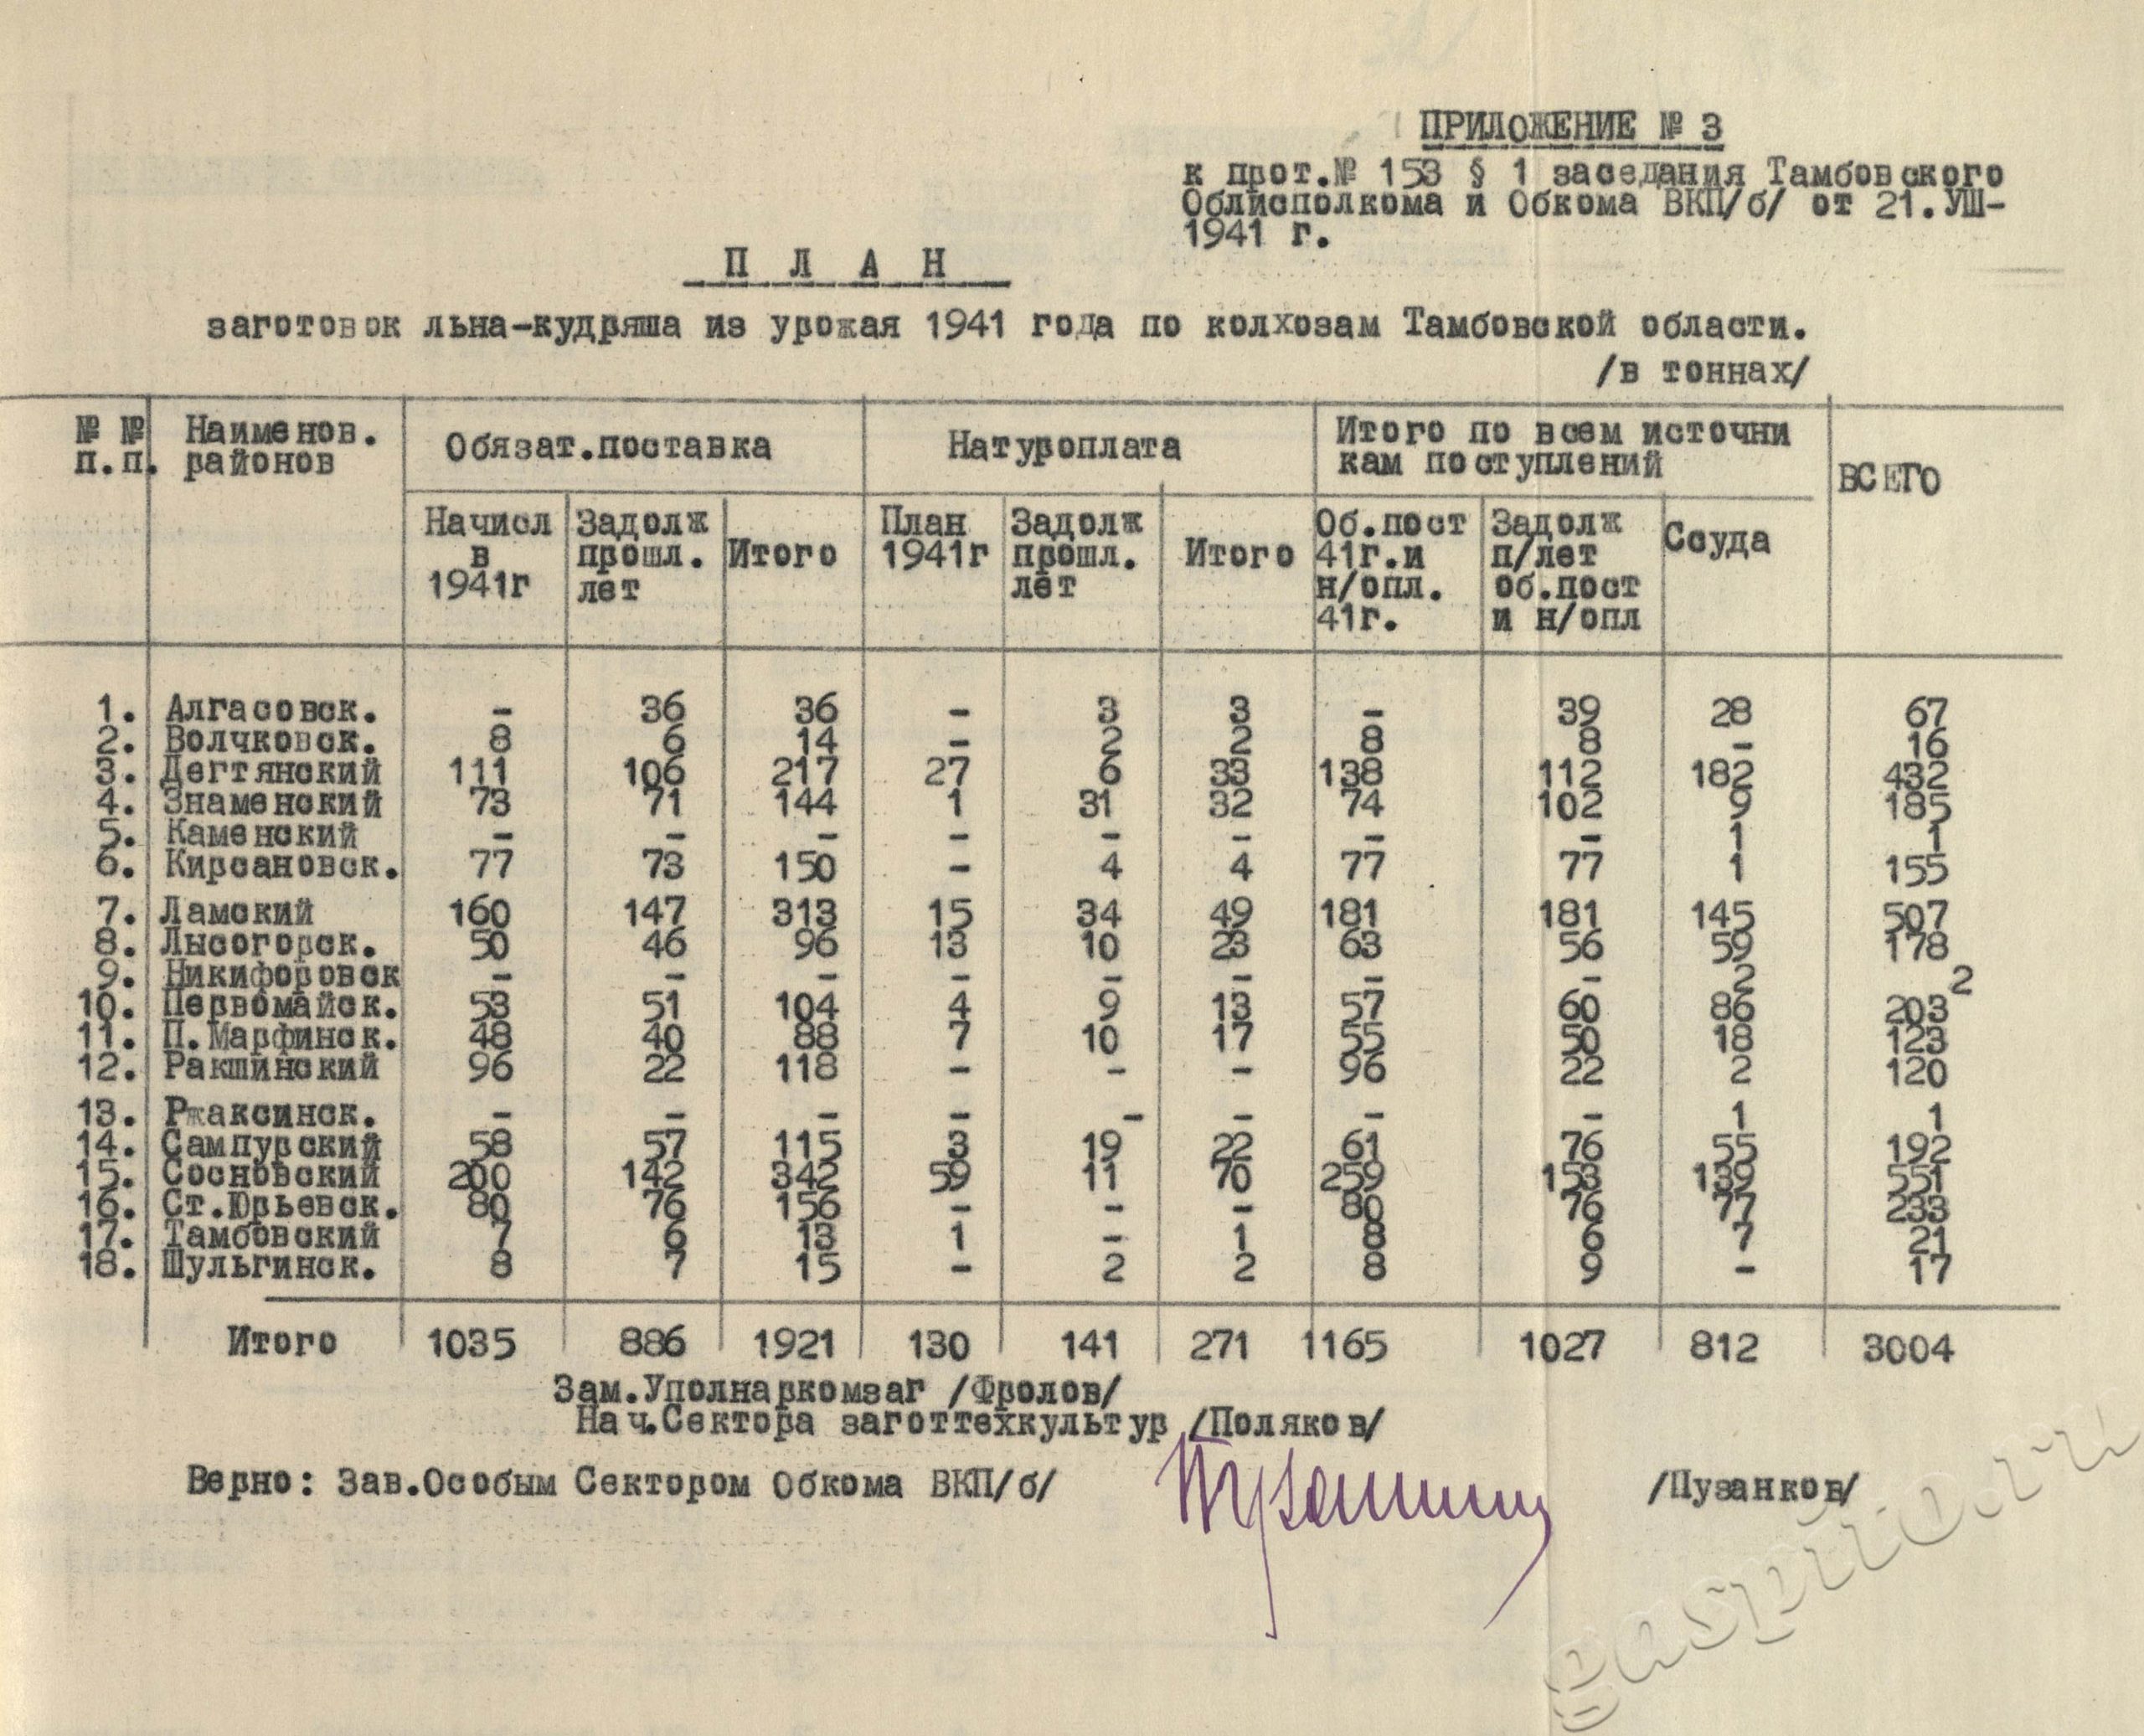 ПРИЛОЖЕНИЕ № 3
к прот.№ 153 § 1 заседания Тамбовского
Облисполкома и Обкома ВКП/б/ от 21.УШ-
1941 г.
П Л А Н
заготовок льна-кудряша из урожая 1941 года по колхозам Тамбовской области.
/в тоннах/
№ № п.п. Наименов. районов Обязат.поставка Натуроплата Итого по всем источни кам поступлений ВСЕГО
Начисл в 1941г Задолж прошл. лет Итого План 1941г Задолж прошл. лет Итого Об.пост 41г.и н/опл. 41г. Задолж п/лет об.пост и н/опл Ссуда
1. Алгасовск. - 36 36 - 3 3 - 39 28 67
2. Волчковск. 8 6 14 - 2 2 8 8 - 16
3. Дегтянский 111 106 217 27 6 33 138 112 182 432
4. Знаменский 73 71 144 1 31 32 74 102 9 185
5. Каменский - - - - - - - - 1 1
6. Кирсановск. 77 73 150 - 4 4 77 77 1 155
7. Ламский 160 147 313 15 34 49 181 181 145 507
8. Лысогорск. 50 46 96 13 10 23 63 56 59 178
9. Никифоровск - - - - - - - - 2 2
10. Первомайск. 53 51 104 4 9 13 57 60 86 203
11. П.Марфинск. 48 40 88 7 10 17 55 50 18 123
12. Ракшинский 96 22 118 - - - 96 22 2 120
13. Ржаксинск. - - - - - - - - 1 1
14. Сампурский 58 57 115 3 19 22 61 76 55 192
15. Сосновский 200 142 342 59 11 70 259 153 139 551
16. Ст.Юрьевск. 80 76 156 - - - 80 76 77 233
17. Тамбовский 7 6 13 1 - 1 8 6 7 21
18. Шульгинск. 8 7 15 - 2 2 8 9 - 17
Итого 1035 886 1921 130 141 271 1165 1027 812 3004
Зам.Уполнаркомзаг /Фролов/
Нач.Сектора заготтехкультур /Поляков/
Верно: Зав.Особым Сектором Обкома ВКП/б/ /Пузанков/
gaspito.ru